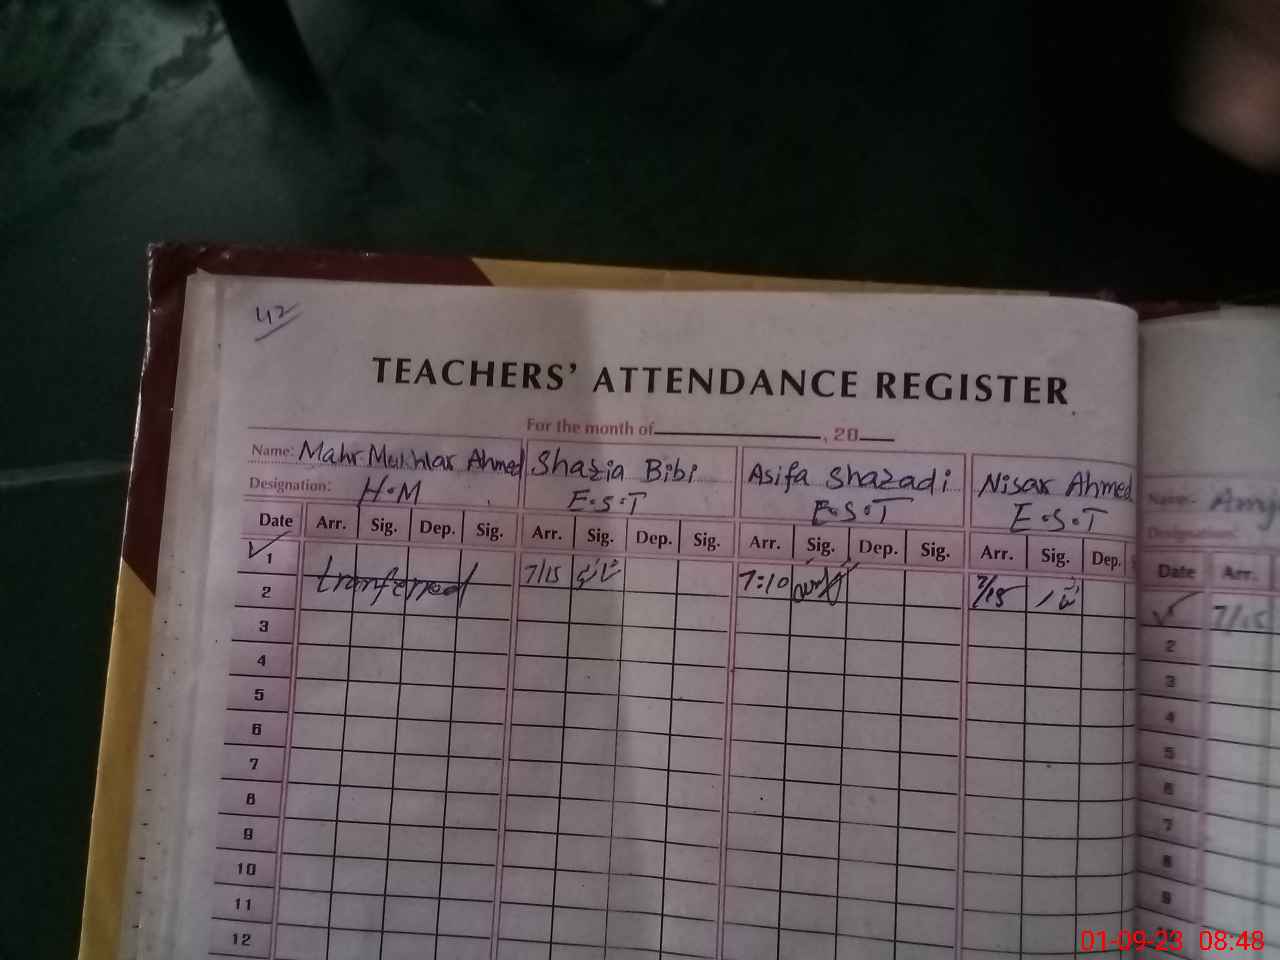 42
TEACHERS' ATTENDANCE REGISTER
For the month of , 20
Name: Mahr Mukhtar Ahmed Shazia Bibi Asifa Shazadi Nisar Ahmed Name:
Designation: H.M E.S.T E.S.T E.S.T Designation:
Date Arr. Sig. Dep. Sig. Arr. Sig. Dep. Sig. Arr. Sig. Dep. Sig. Arr. Sig. Dep. Date Arr.
1 tranferred 7/15 7:10 7/15 7/15
2 2
3 3
4 4
5 5
6 6
7 7
8 8
9 9
10
11
12
01-09-23 08:48